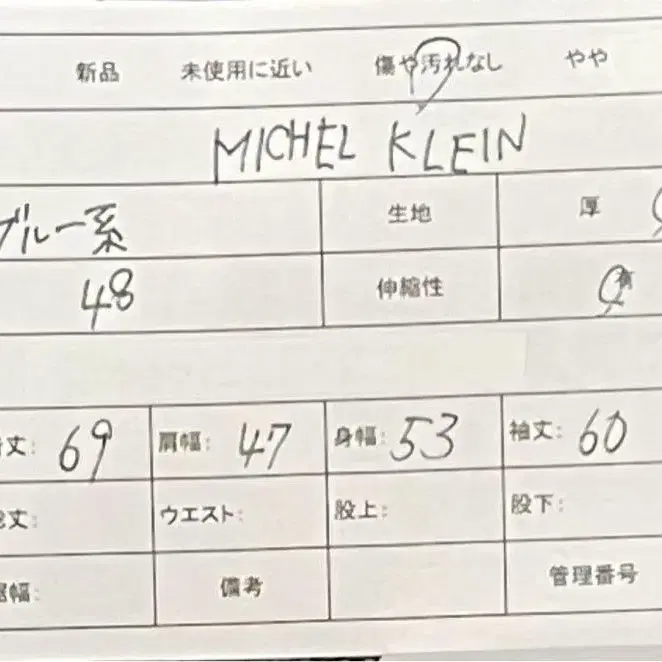 新品 未使用に近い 傷や汚れなし やや
MICHEL KLEIN
ブルー系 生地 厚
48 伸縮性 有
丈: 69 肩幅: 47 身幅: 53 袖丈: 60
丈: ウエスト: 股上: 股下:
幅: 備考 管理番号